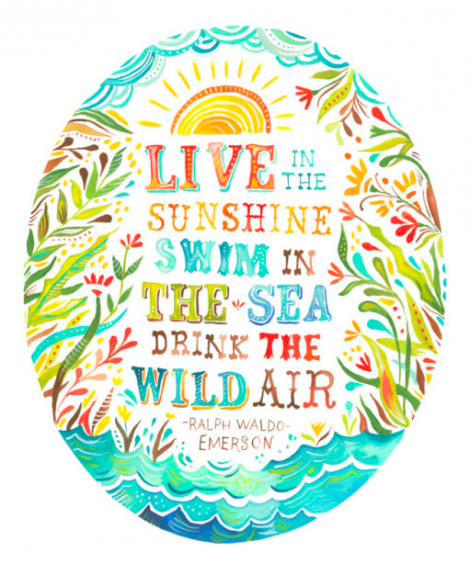 LIVE IN THE
SUNSHINE
SWIM IN
THE SEA
DRINK THE
WILD AIR
-RALPH WALDO-
EMERSON